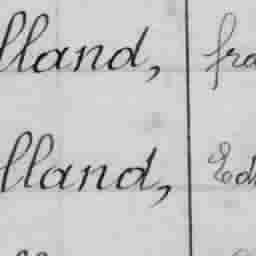 lland, fra
lland, Ed